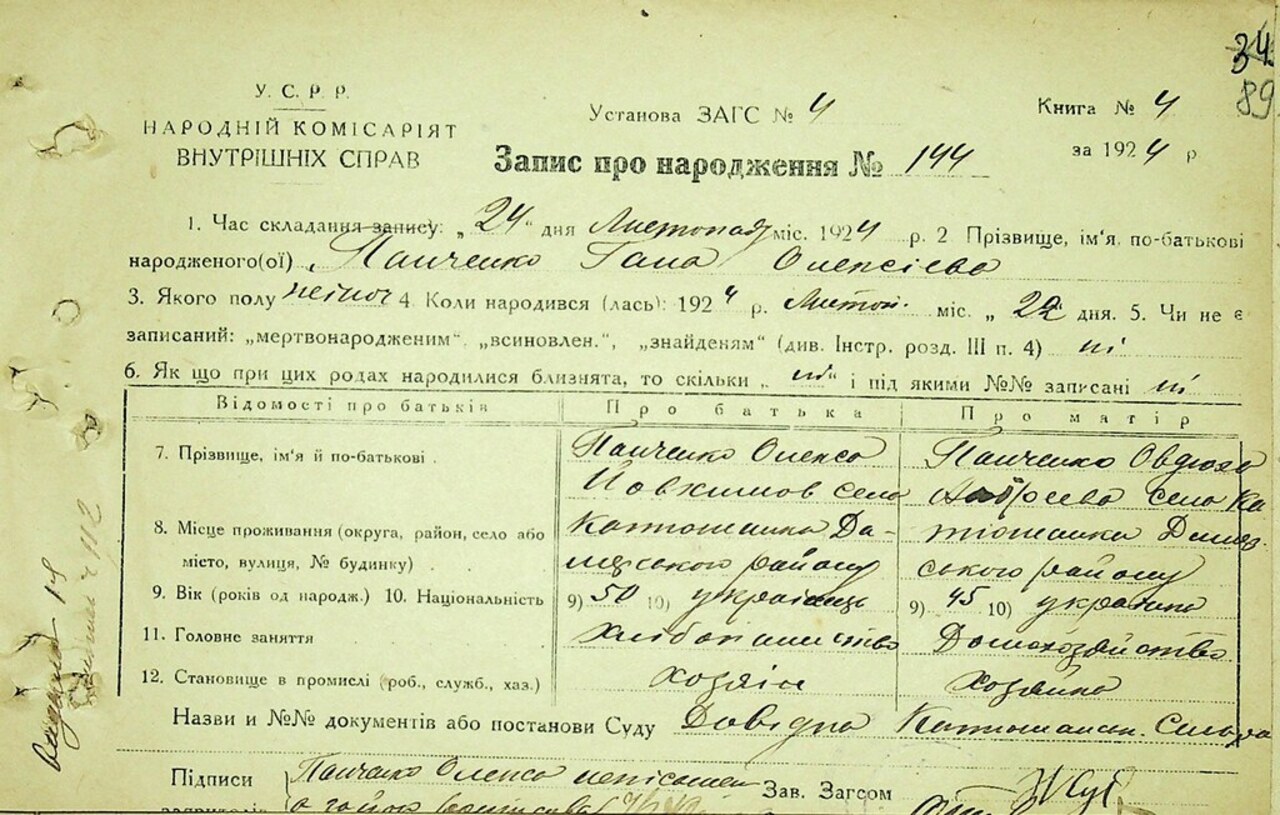 34
89
У. С. Р. Р.
НАРОДНІЙ КОМІСАРІЯТ
ВНУТРІШНІХ СПРАВ
Установа ЗАГС № 4
Книга № 4
за 1924 р
Запис про народження № 144
1. Час складання запису: „24“ дня Листопад міс. 1924 р. 2 Прізвище, ім'я, по-батькові
народженого(ої) Панченко Гана Олексієва
3. Якого полу жіноч 4. Коли народився (лась): 1924 р. Листоп. міс. „22“ дня. 5. Чи не є
записаний: „мертвонародженим“, „всиновлен.“, „знайденям“ (див. Інстр. розд. III п. 4) ні
6. Як що при цих родах народилися близнята, то скільки „ні“ і під якими №№ записані ні
Відомості про батьків Про батька Про матір
7. Прізвище, ім'я й по-батькові . Панченко Олекса Панченко Овдюха
Йовхимов село село Ка
8. Місце проживання (округа, район, село або Катюшанка Да- тюшанка
місто, вулиця, № будинку) . району ського району
9. Вік (років од народж.) 10. Національність 9) 50 10) украінець 9) 45 10) украінка
11. Головне заняття Хлібопашество Домохозяйство
12. Становище в промислі (роб., служб., хаз.) хозяін хозяйка
Назви и №№ документів або постанови Суду Довідка Катюшанск. Сельра
Підписи Панченко Олекса Зав. Загсом